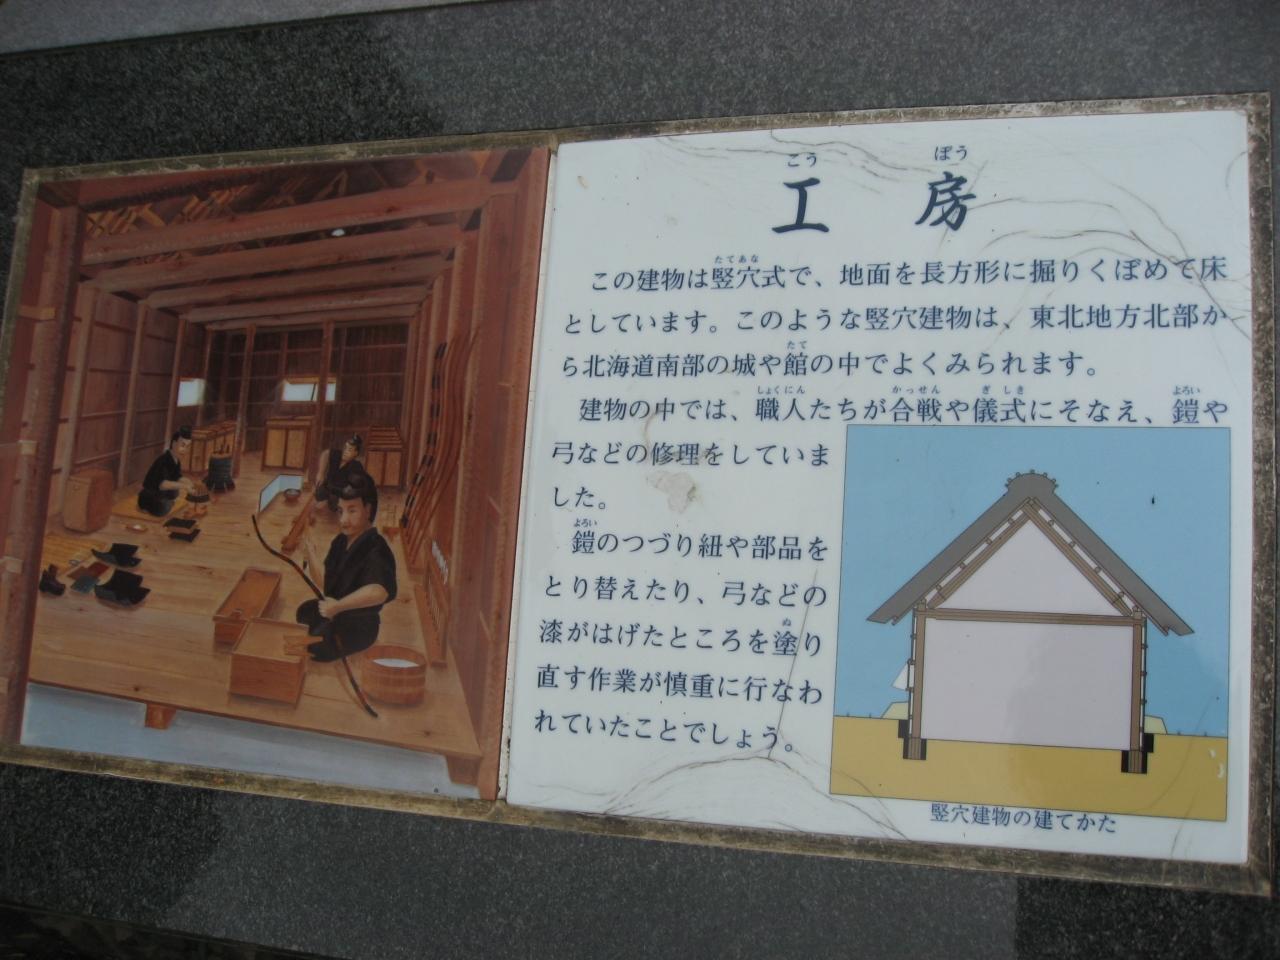 こう ぼう
工房
たてあな
この建物は竪穴式で、地面を長方形に掘りくぼめて床
としています。このような竪穴建物は、東北地方北部か
たて
ら北海道南部の城や館の中でよくみられます。
しょくにん かっせん ぎしき よろい
建物の中では、職人たちが合戦や儀式にそなえ、鎧や
弓などの修理をしていま
した。
よろい
鎧のつづり紐や部品を
とり替えたり、弓などの
ぬ
漆がはげたところを塗り
直す作業が慎重に行なわ
れていたことでしょう。
竪穴建物の建てかた